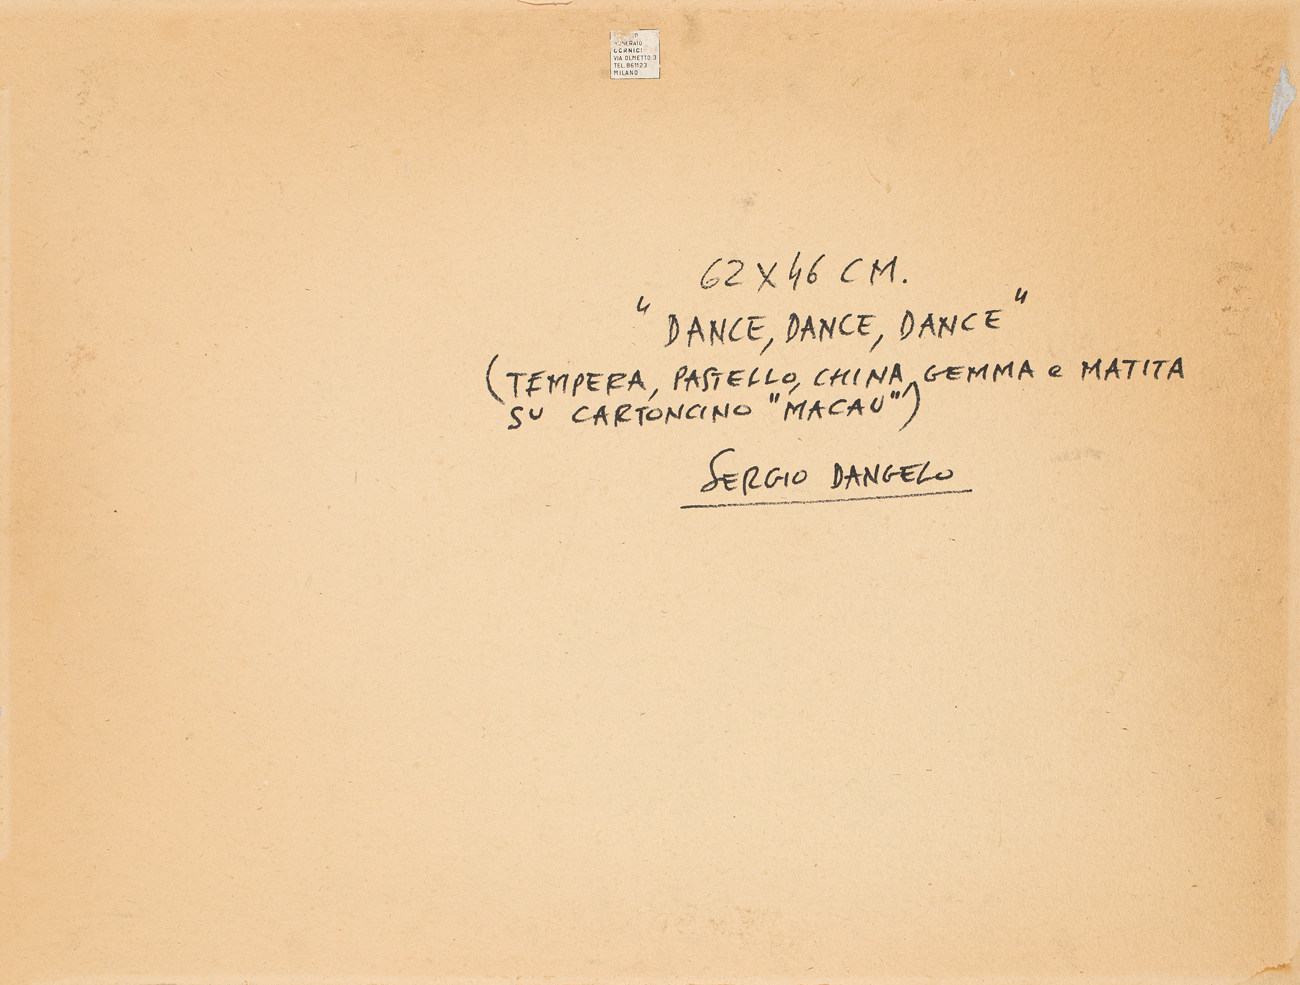 CORNICI
VIA OLMETTO 3
TEL. 861123
MILANO
62 X 46 CM.
"DANCE, DANCE, DANCE"
(TEMPERA, PASTELLO, CHINA, GEMMA e MATITA
SU CARTONCINO "MACAU")
SERGIO DANGELO